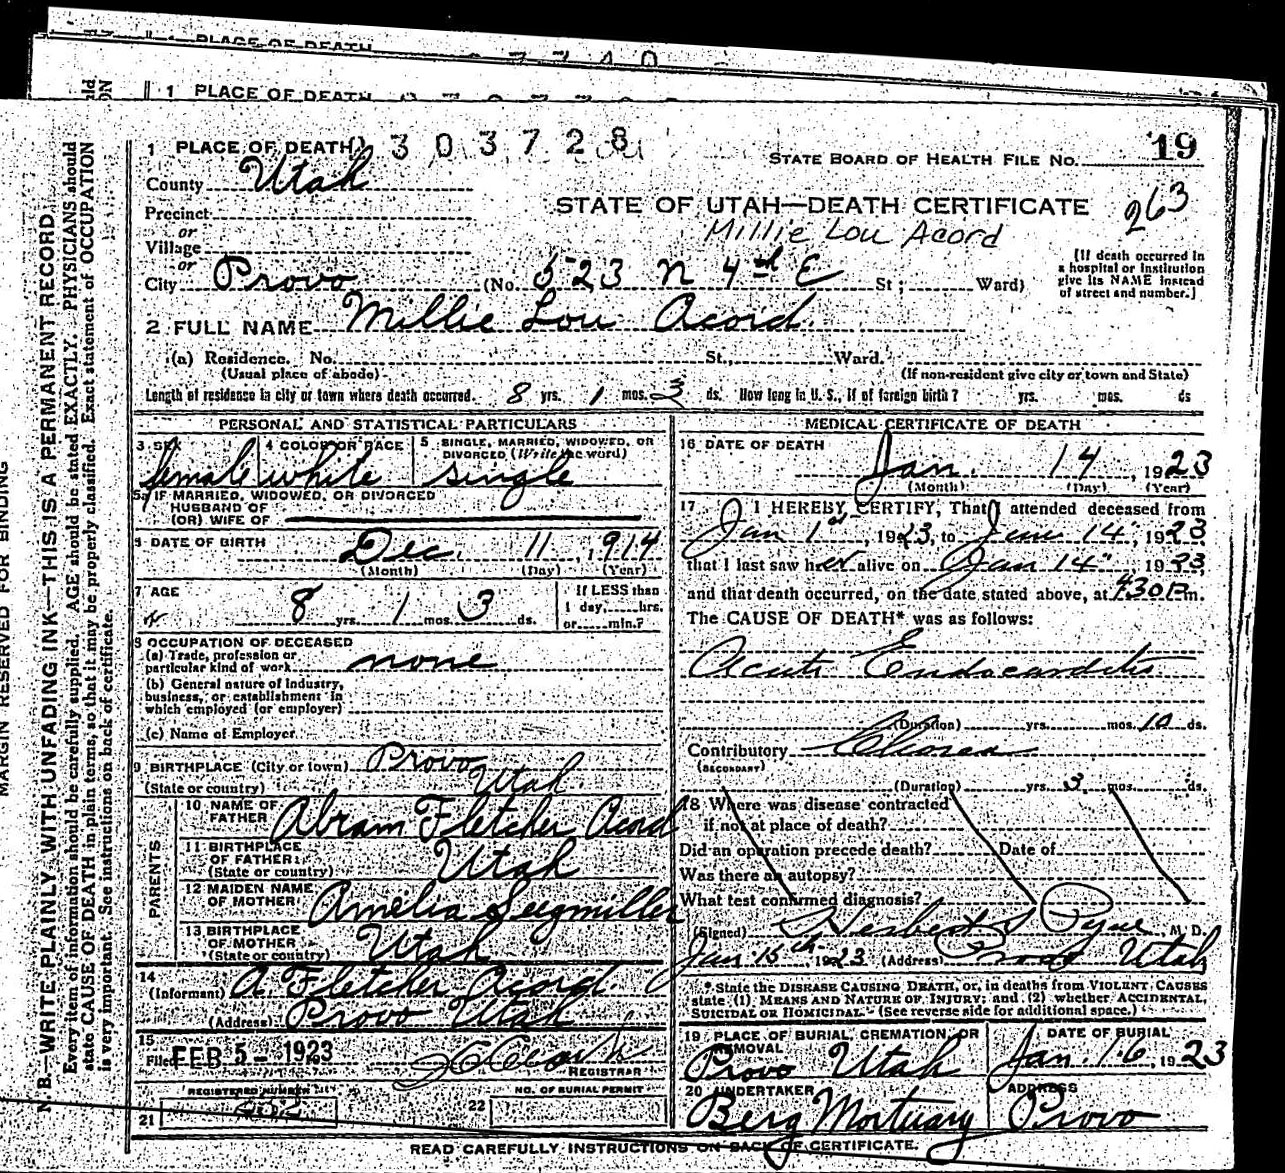 1 PLACE OF DEATH
1 PLACE OF DEATH
1 PLACE OF DEATH 303728
STATE BOARD OF HEALTH FILE NO. 19
County Utah
263
STATE OF UTAH—DEATH CERTIFICATE
Millie Lou Acord
Precinct
or
Village
or
City Provo (No. 523 N 4th E St; Ward)
[If death occurred in a hospital or institution give its NAME instead of street and number.]
2 FULL NAME Millie Lou Acord
(a) Residence. No. St., Ward.
(Usual place of abode) (If non-resident give city or town and State)
Length of residence in city or town where death occurred. 8 yrs. 1 mos. 3 ds. How long in U. S., if of foreign birth? yrs. mos. ds
PERSONAL AND STATISTICAL PARTICULARS
3 SEX female
4 COLOR OR RACE white
5 SINGLE, MARRIED, WIDOWED, OR DIVORCED (Write the word) single
5a IF MARRIED, WIDOWED, OR DIVORCED
HUSBAND OF
(OR) WIFE OF
6 DATE OF BIRTH Dec. 11, 1914
(Month) (Day) (Year)
7 AGE 8 yrs. 1 mos. 3 ds.
If LESS than 1 day, hrs. or min.?
8 OCCUPATION OF DECEASED
(a) Trade, profession or particular kind of work none
(b) General nature of industry, business, or establishment in which employed (or employer)
(c) Name of Employer
9 BIRTHPLACE (City or town) Provo
(State or country) Utah
PARENTS
10 NAME OF FATHER Abram Fletcher Acord
11 BIRTHPLACE OF FATHER (State or country) Utah
12 MAIDEN NAME OF MOTHER Amelia Seegmiller
13 BIRTHPLACE OF MOTHER (State or country) Utah
14 (Informant) A Fletcher Acord
(Address) Provo Utah
15 Filed FEB 5 - 1923
REGISTRAR
REGISTERED NUMBER
NO. OF BURIAL PERMIT
21
22
MEDICAL CERTIFICATE OF DEATH
16 DATE OF DEATH
Jan. 14, 1923
(Month) (Day) (Year)
17 I HEREBY CERTIFY, That I attended deceased from
Jan 1st, 1923, to Jan 14", 1923
that I last saw her alive on Jan 14", 1923,
and that death occurred, on the date stated above, at 430 P m.
The CAUSE OF DEATH* was as follows:
Acute Endocarditis
(Duration) yrs. mos. 10 ds.
Contributory Chorea
(SECONDARY)
(Duration) yrs. 3 mos. ds.
18 Where was disease contracted
if not at place of death?
Did an operation precede death? Date of
Was there an autopsy?
What test confirmed diagnosis?
(Signed) Herbert S Pyne, M. D.
Jan 15th 1923 (Address) Provo Utah
*State the DISEASE CAUSING DEATH, or, in deaths from VIOLENT CAUSES
state (1) MEANS AND NATURE OF INJURY; and (2) whether ACCIDENTAL,
SUICIDAL OR HOMICIDAL. (See reverse side for additional space.)
19 PLACE OF BURIAL, CREMATION, OR REMOVAL
Provo Utah
DATE OF BURIAL
Jan. 16, 1923
20 UNDERTAKER
Berg Mortuary
ADDRESS
Provo
READ CAREFULLY INSTRUCTIONS ON BACK OF CERTIFICATE.
MARGIN RESERVED FOR BINDING
N. B.—WRITE PLAINLY WITH UNFADING INK—THIS IS A PERMANENT RECORD
Every item of information should be carefully supplied. AGE should be stated EXACTLY. PHYSICIANS should
state CAUSE OF DEATH in plain terms, so that it may be properly classified. Exact statement of OCCUPATION
is very important. See instructions on back of certificate.